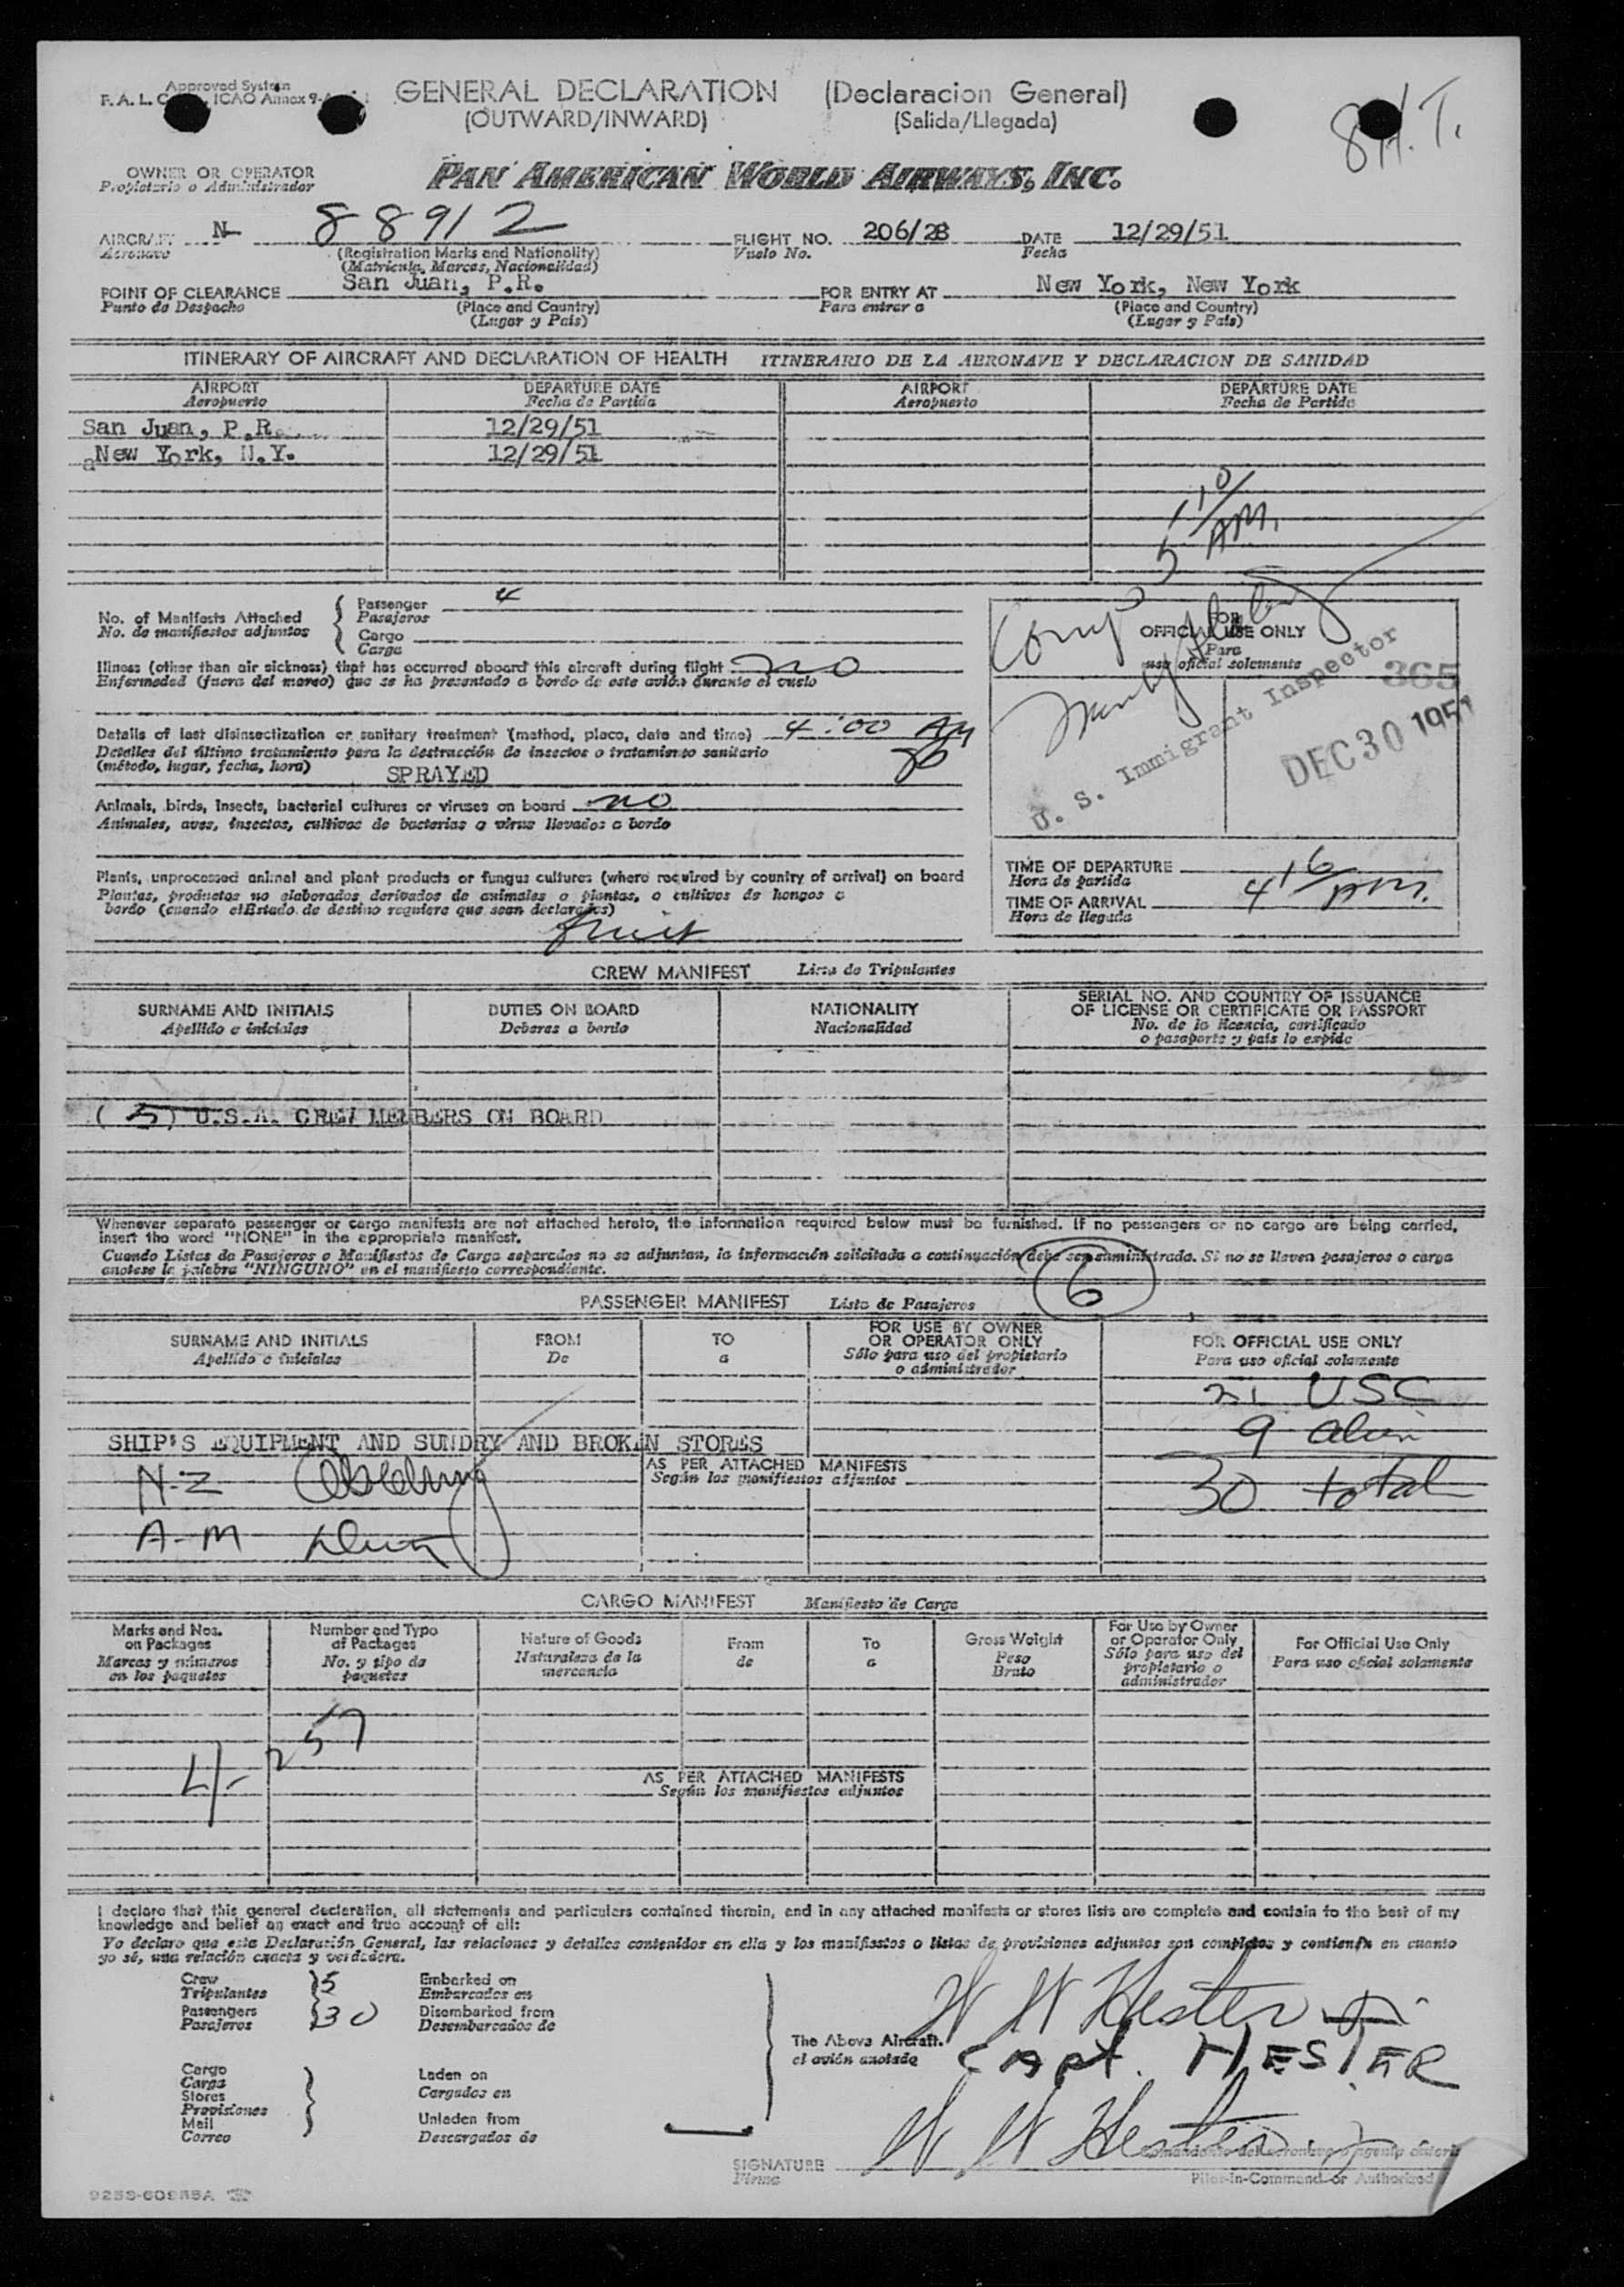 Approved System
F. A. L. C ICAO Annex 9-
GENERAL DECLARATION (Declaracion General)
(OUTWARD/INWARD) (Salida/Llegada)
8 H.T.
OWNER OR OPERATOR
Propietario o Administrador
PAN AMERICAN WORLD AIRWAYS, INC.
AIRCRAFT N- 88912 FLIGHT NO. 206/28 DATE 12/29/51
Aeronave (Registration Marks and Nationality) Vuelo No. Fecha
(Matricula, Marcas, Nacionalidad)
POINT OF CLEARANCE San Juan, P.R. FOR ENTRY AT New York, New York
Punto de Despacho (Place and Country) Para entrar a (Place and Country)
(Lugar y Pais) (Lugar y Pais)
ITINERARY OF AIRCRAFT AND DECLARATION OF HEALTH ITINERARIO DE LA AERONAVE Y DECLARACION DE SANIDAD
AIRPORT DEPARTURE DATE AIRPORT DEPARTURE DATE
Aeropuerto Fecha de Partida Aeropuerto Fecha de Partida
San Juan, P.R. 12/29/51
aNew York, N.Y. 12/29/51
5 10/AM.
No. of Manifests Attached
No. de manifiestos adjuntos
Passenger 4
Pasajeros
Cargo
Carga
FOR
OFFICIAL USE ONLY
Para
uso oficial solamente
U. S. Immigrant Inspector
365
DEC 30 1951
Illness (other than air sickness) that has occurred aboard this aircraft during flight no
Enfermedad (fuera del mareo) que se ha presentado a bordo de este avión durante el vuelo
Details of last disinsectization or sanitary treatment (method, place, date and time) 4:00 AM
Detalles del último tratamiento para la destrucción de insectos o tratamiento sanitario
(método, lugar, fecha, hora) SPRAYED
Animals, birds, insects, bacterial cultures or viruses on board no
Animales, aves, insectos, cultivos de bacterias o virus llevados a bordo
Plants, unprocessed animal and plant products or fungus cultures (where required by country of arrival) on board
Plantas, productos no elaborados derivados de animales o plantas, o cultivos de hongos a
bordo (cuando el Estado de destino requiere que sean declarados)
fruit
TIME OF DEPARTURE
Hora de partida
4 16/AM.
TIME OF ARRIVAL
Hora de llegada
CREW MANIFEST Lista de Tripulantes
SURNAME AND INITIALS DUTIES ON BOARD NATIONALITY SERIAL NO. AND COUNTRY OF ISSUANCE
OF LICENSE OR CERTIFICATE OR PASSPORT
Apellido e iniciales Deberes a bordo Nacionalidad No. de la licencia, certificado
o pasaporte y pais lo expide
( 5 ) U.S.A. CREW MEMBERS ON BOARD
Whenever separate passenger or cargo manifests are not attached hereto, the information required below must be furnished. If no passengers or no cargo are being carried,
insert the word "NONE" in the appropriate manifest.
Cuando Listas de Pasajeros o Manifiestos de Carga separados no se adjuntan, la información solicitada a continuación debe ser suministrada. Si no se llevan pasajeros o carga
anotese la palabra "NINGUNO" en el manifiesto correspondiente.
6
PASSENGER MANIFEST Lista de Pasajeros
SURNAME AND INITIALS FROM TO FOR USE BY OWNER
OR OPERATOR ONLY FOR OFFICIAL USE ONLY
Apellido e iniciales De a Sólo para uso del propietario
o administrador Para uso oficial solamente
21 USC
9 alien
30 total
SHIP'S EQUIPMENT AND SUNDRY AND BROKEN STORES
AS PER ATTACHED MANIFESTS
Según los manifiestos adjuntos
N-Z
A-M
CARGO MANIFEST Manifiesto de Carga
Marks and Nos.
on Packages
Marcas y números
en los paquetes
Number and Type
of Packages
No. y tipo de
paquetes
Nature of Goods
Naturaleza de la
mercancia
From
de
To
a
Gross Weight
Peso
Bruto
For Use by Owner
or Operator Only
Sólo para uso del
propietario o
administrador
For Official Use Only
Para uso oficial solamente
4-257
AS PER ATTACHED MANIFESTS
Según los manifiestos adjuntos
I declare that this general declaration, all statements and particulars contained therein, and in any attached manifests or stores lists are complete and contain to the best of my
knowledge and belief an exact and true account of all:
Yo declaro que esta Declaración General, las relaciones y detalles contenidos en ella y los manifiestos o listas de provisiones adjuntos son completos y contienen en cuanto
yo sé, una relación exacta y verdadera.
Crew 5 Embarked on
Tripulantes Embarcados en
Passengers 30 Disembarked from
Pasajeros Desembarcados de
The Above Aircraft.
el avión anotado
W W Hester Jr.
CAPT. HESTER
Cargo
Carga
Stores
Provisiones
Mail
Correo
Laden on
Cargados en
Unladen from
Descargados de
W W Hester Jr.
SIGNATURE
Firma
Comandante del aeronave o Agente
Pilot-in-Command or Authorized